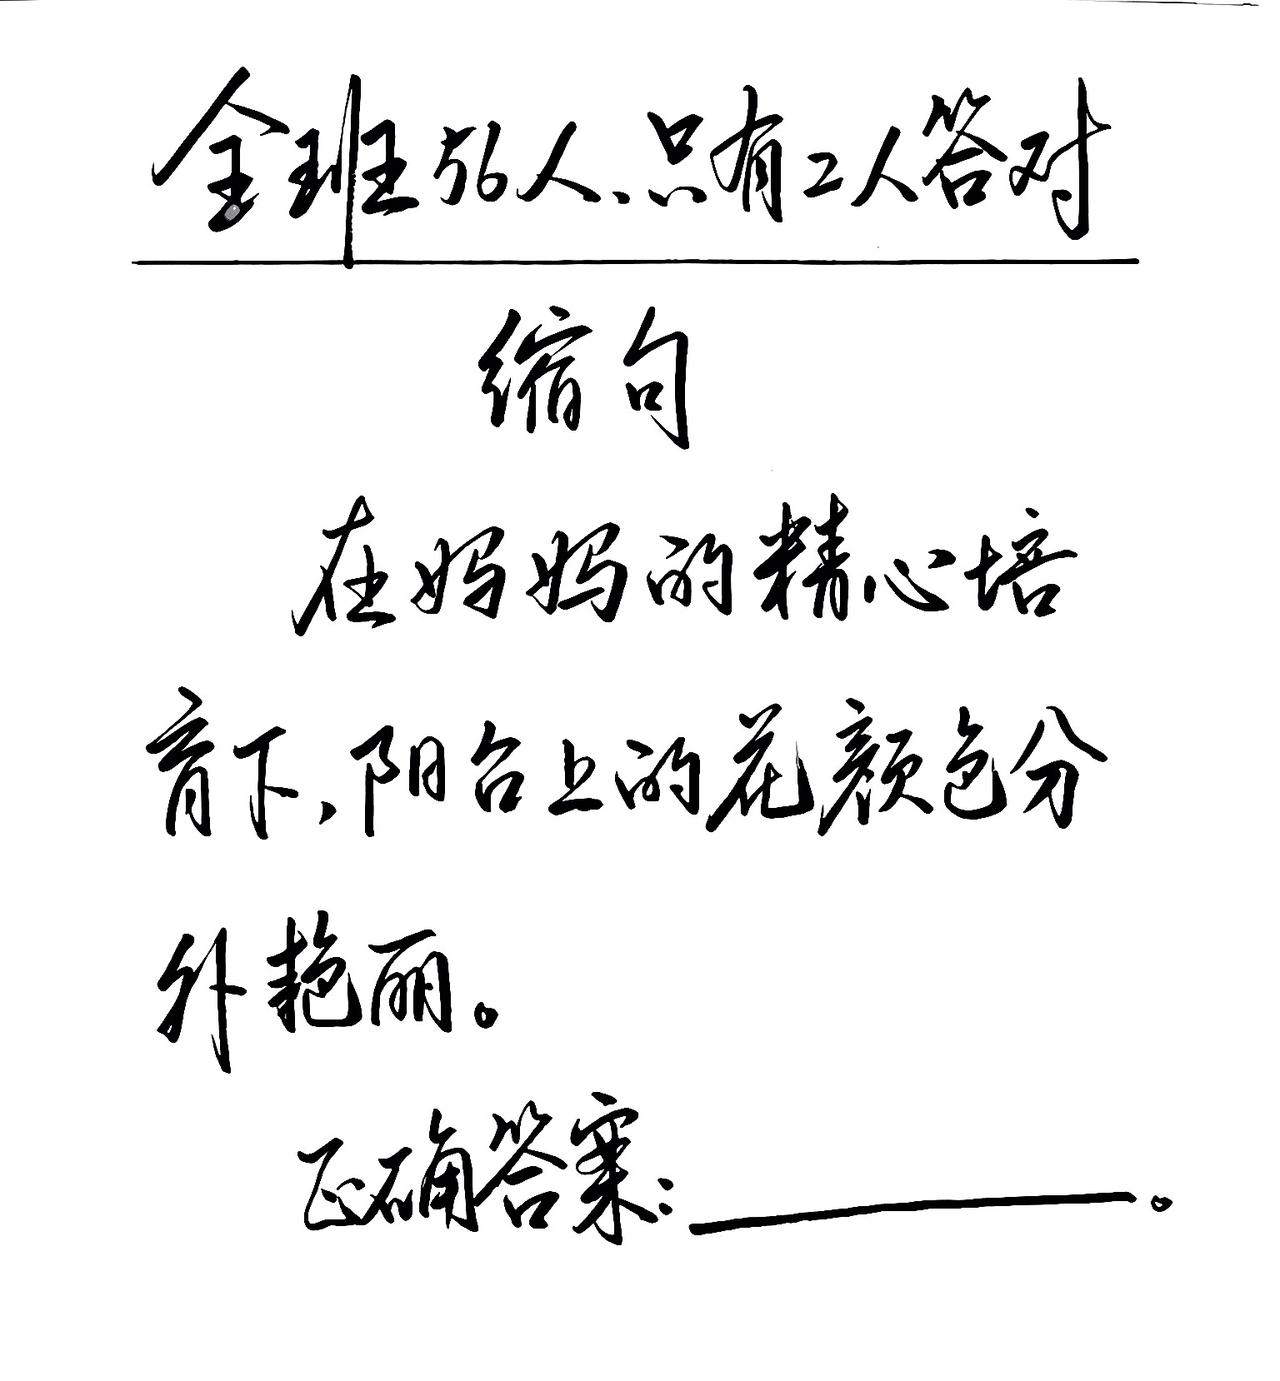 全班56人、只有2人答对
缩句
在妈妈的精心培
育下,阳台上的花颜色分
外艳丽。
正确答案:________。